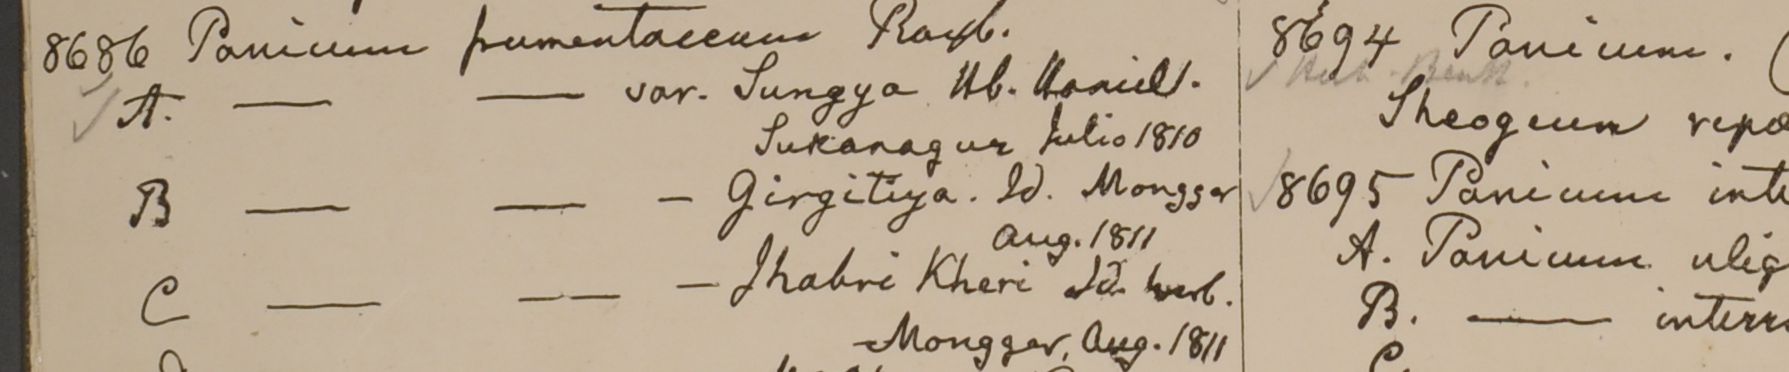 8686 Panicum frumentaceum Roxb.
A. — — var. Sungya Hb. Hamilt.
Sukanagur Julio 1810
B — — — Girgitiya. Id. Mongger
Aug. 1811
C — — — Jhabri Kheri Id. herb.
Mongger, Aug. 1811
8694 Panicum. (
Sheogeum repo
8695 Panicum inte
A. Panicum ulig
B. — interr
C